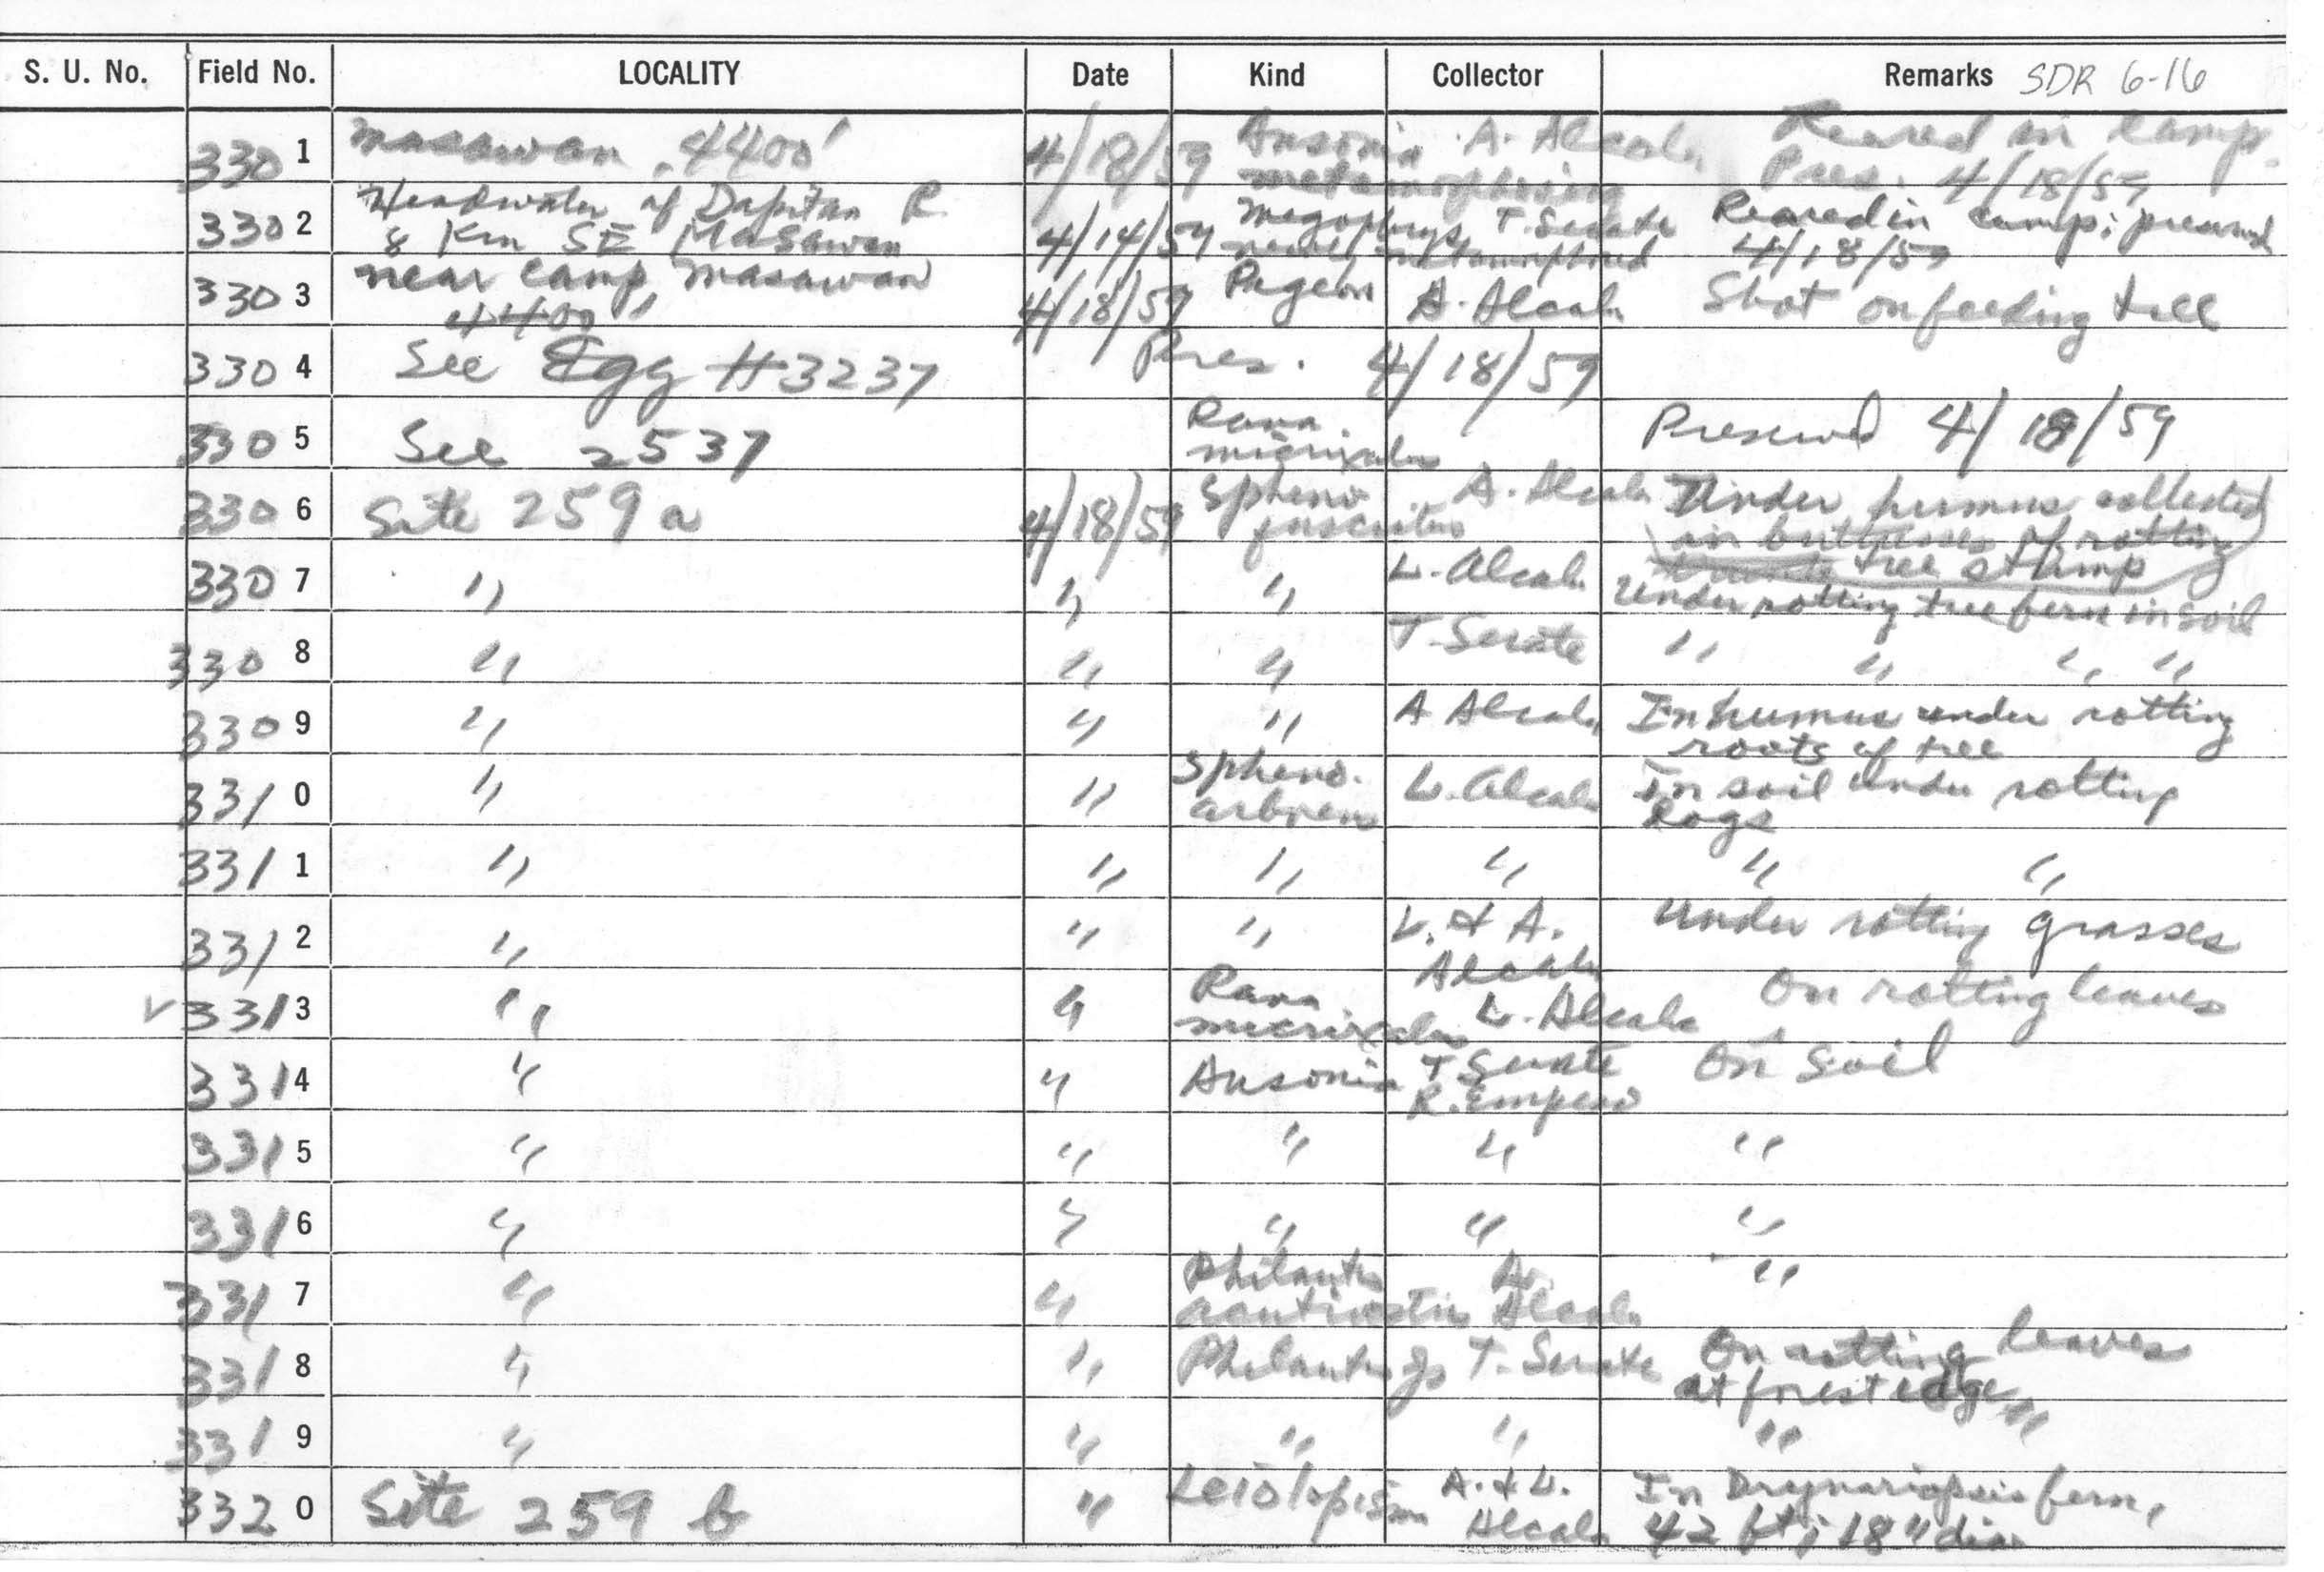 S. U. No. Field No. LOCALITY Date Kind Collector Remarks SDR 6-16
3301 Masawan, 4400' 4/18/59 Ansonia metamorphosing A. Alcala Reared in Camp. Pres. 4/18/59
3302 Headwater of Dapitan R. 8 Km SE Masawan 4/14/59 Megophrys newly metamorphosed T. Serate Reared in camp; preserved 4/18/59
3303 near Camp, Masawan 4400' 4/18/59 Pigeon A. Alcala Shot on feeding tree
3304 See Egg #3237 Pres. 4/18/59
3305 See 2537 Rana micrixalus Preserved 4/18/59
3306 Site 259 a 4/18/59 Spheno fasciatus A. Alcala Under humus collected in buttresses of rotting tree stump
3307 " " " L. Alcala Under rotting tree fern in soil
3308 " " " T. Serate " " " "
3309 " " " A Alcala In humus under rotting roots of tree
3310 " " Spheno. arborens L. Alcala In soil under rotting logs
3311 " " " " " "
3312 " " " L. & A. Alcala Under rotting grasses
✓ 3313 " " Rana micrixalus L. Alcala On rotting leaves
3314 " " Ansonia T. Serate R. Empeso On Soil
3315 " " " " "
3316 " " " " "
3317 " " Philautus L. Alcala "
3318 " " Philautus T. Serate On rotting leaves at forest edge
3319 " " " " " "
3320 Site 259 b " Leiolopisma A. & L. Alcala In Drynariopsis fern, 42 ft; 18" dia